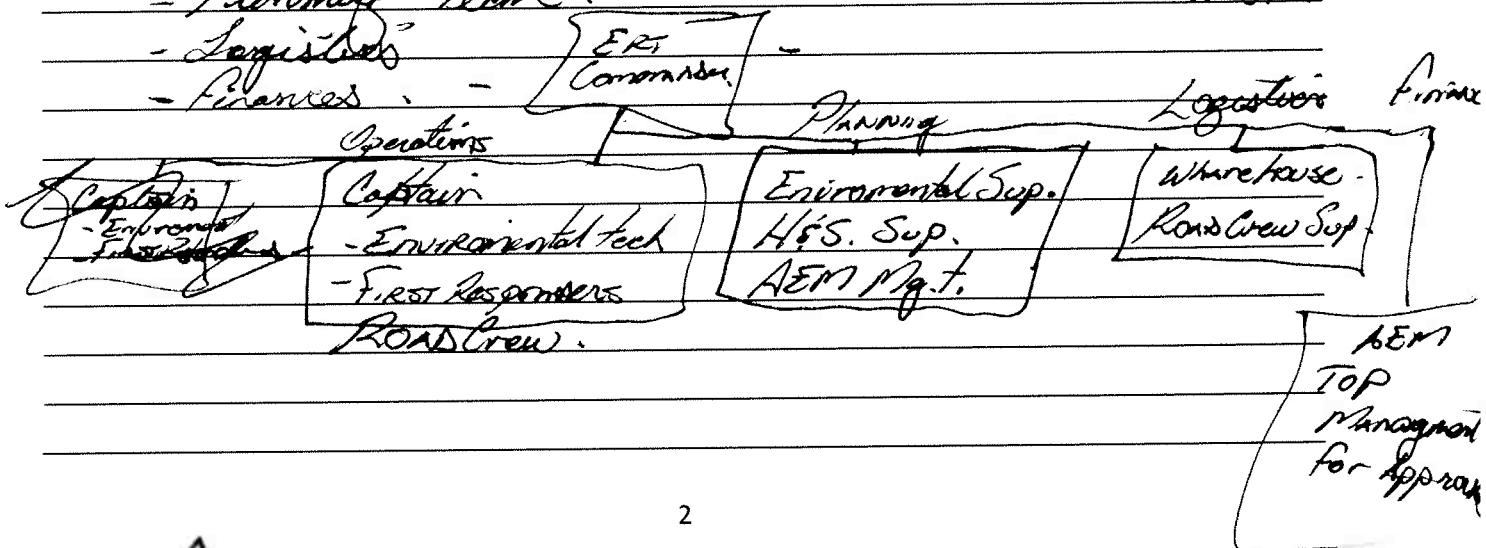 - Logistics
- Finances. -
ERT
Commander.
-
Operations
Planning
Logistics
Captain
- Enviroment
Captain
- Enviromental tech
- First Responders
Road Crew.
Eniromental Sup.
H&S. Sup.
AEM Mg.t.
Wharehouse.
Road Crew Sup.
AEM
Top
Managment
for
2